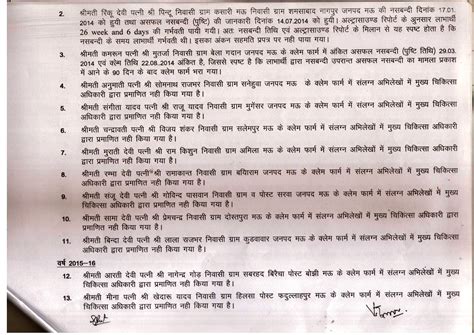 2. श्रीमती रिंकू देवी पत्नी श्री पिन्टू निवासी ग्राम कसारी मऊ निवासी ग्राम शमसाबाद नागपुर जनपद मऊ की नसबन्दी दिनांक 17.01.
2014 को हुयी तथा असफल नसबन्दी (पुष्टि) की जानकारी दिनांक 14.07.2014 को हुयी। अल्ट्रासाउण्ड रिपोर्ट के अुनसार लाभार्थी
26 week and 6 days की गर्भवती पायी गयी। अतः नसबन्दी तिथि एवं अल्ट्रासाउण्ड रिपोर्ट के मिलान से यह स्पष्ट होता है कि
नसबन्दी के समय लाभार्थी गर्भवती थी। इसका अंकन सहमति प्रपत्र पर नही पाया गया।
3. श्रीमती कमरून पत्नी श्री मुतर्जा निवासी ग्राम बेला गदान जनपद मऊ के क्लेम फार्म में अंकित असफल नसबन्दी (पुष्टि तिथि) 29.03.
2014 एवं क्लेम तिथि 22.08.2014 अंकित है, जिससे स्पष्ट है कि लाभार्थी द्वारा नसबन्दी उपरान्त असफल नसबन्दी का मामला प्रकाश
में आने के 90 दिन के बाद क्लेम फार्म भरा गया।
4. श्रीमती अनुमाती पत्नी श्री सोमनाथ राजभर निवासी ग्राम सनेहुवा जनपद मऊ के क्लेम फार्म में संलग्न अभिलेखों में मुख्य चिकित्सा
अधिकारी द्वारा प्रमाणित नही किया गया है।
5. श्रीमती संगीता यादव पत्नी श्री राजू यादव निवासी ग्राम मुगेसर जनपद मऊ के क्लेम फार्म में संलग्न अभिलेखों में मुख्य चिकित्सा
अधिकारी द्वारा प्रमाणित नही किया गया है।
6. श्रीमती चन्द्रावती पत्नी श्री विजय शंकर निवासी ग्राम सलेमपुर मऊ के क्लेम फार्म में संलग्न अभिलेखों में मुख्य चिकित्सा अधिकारी
द्वारा प्रमाणित नही किया गया है।
7. श्रीमती मुराती देवी पत्नी श्री राम किशुन निवासी ग्राम अमिला मऊ के क्लेम फार्म में संलग्न अभिलेखों में मुख्य चिकित्सा अधिकारी
द्वारा प्रमाणित नही किया गया है।
8. श्रीमती रम्भा देवी पत्नी श्री रामाकान्त निवासी ग्राम बग्रियाम मऊ के क्लेम फार्म में संलग्न अभिलेखों में मुख्य चिकित्सा
अधिकारी द्वारा प्रमाणित नही किया गया है।
9. श्रीमती संजू देवी पत्नी श्री गोविन्द पासवान निवासी ग्राम व पोस्ट सरवा जनपद मऊ के क्लेम फार्म में संलग्न अभिलेखों में मुख्य
चिकित्सा अधिकारी द्वारा प्रमाणित नही किया गया है।
10. श्रीमती सामा देवी पत्नी श्री प्रेमचन्द्र निवासी ग्राम दोस्तपुरा मऊ के क्लेम फार्म में संलग्न अभिलेखों में मुख्य चिकित्सा अधिकारी
द्वारा प्रमाणित नही किया गया है।
11. श्रीमती बिन्दा देवी पत्नी श्री लाला राजभर निवासी ग्राम कुडवावार जनपद मऊ के क्लेम फार्म में संलग्न अभिलेखों में मुख्य चिकित्सा
अधिकारी द्वारा प्रमाणित नही किया गया है।
वर्ष 2015-16
12. श्रीमती आरती देवी पत्नी श्री नागेन्द्र गोड़ निवासी सबरहद बिरैचा पोस्ट बोझी मऊ के क्लेम फार्म में संलग्न अभिलेखों में मुख्य
चिकित्सा अधिकारी द्वारा प्रमाणित नही किया गया है।
13. श्रीमती मीना पत्नी श्री खेदारू यादव निवासी ग्राम हिलसा पोस्ट फदुल्लाहपुर मऊ के क्लेम फार्म में संलग्न अभिलेखों में मुख्य
चिकित्सा अधिकारी द्वारा प्रमाणित नही किया गया है।